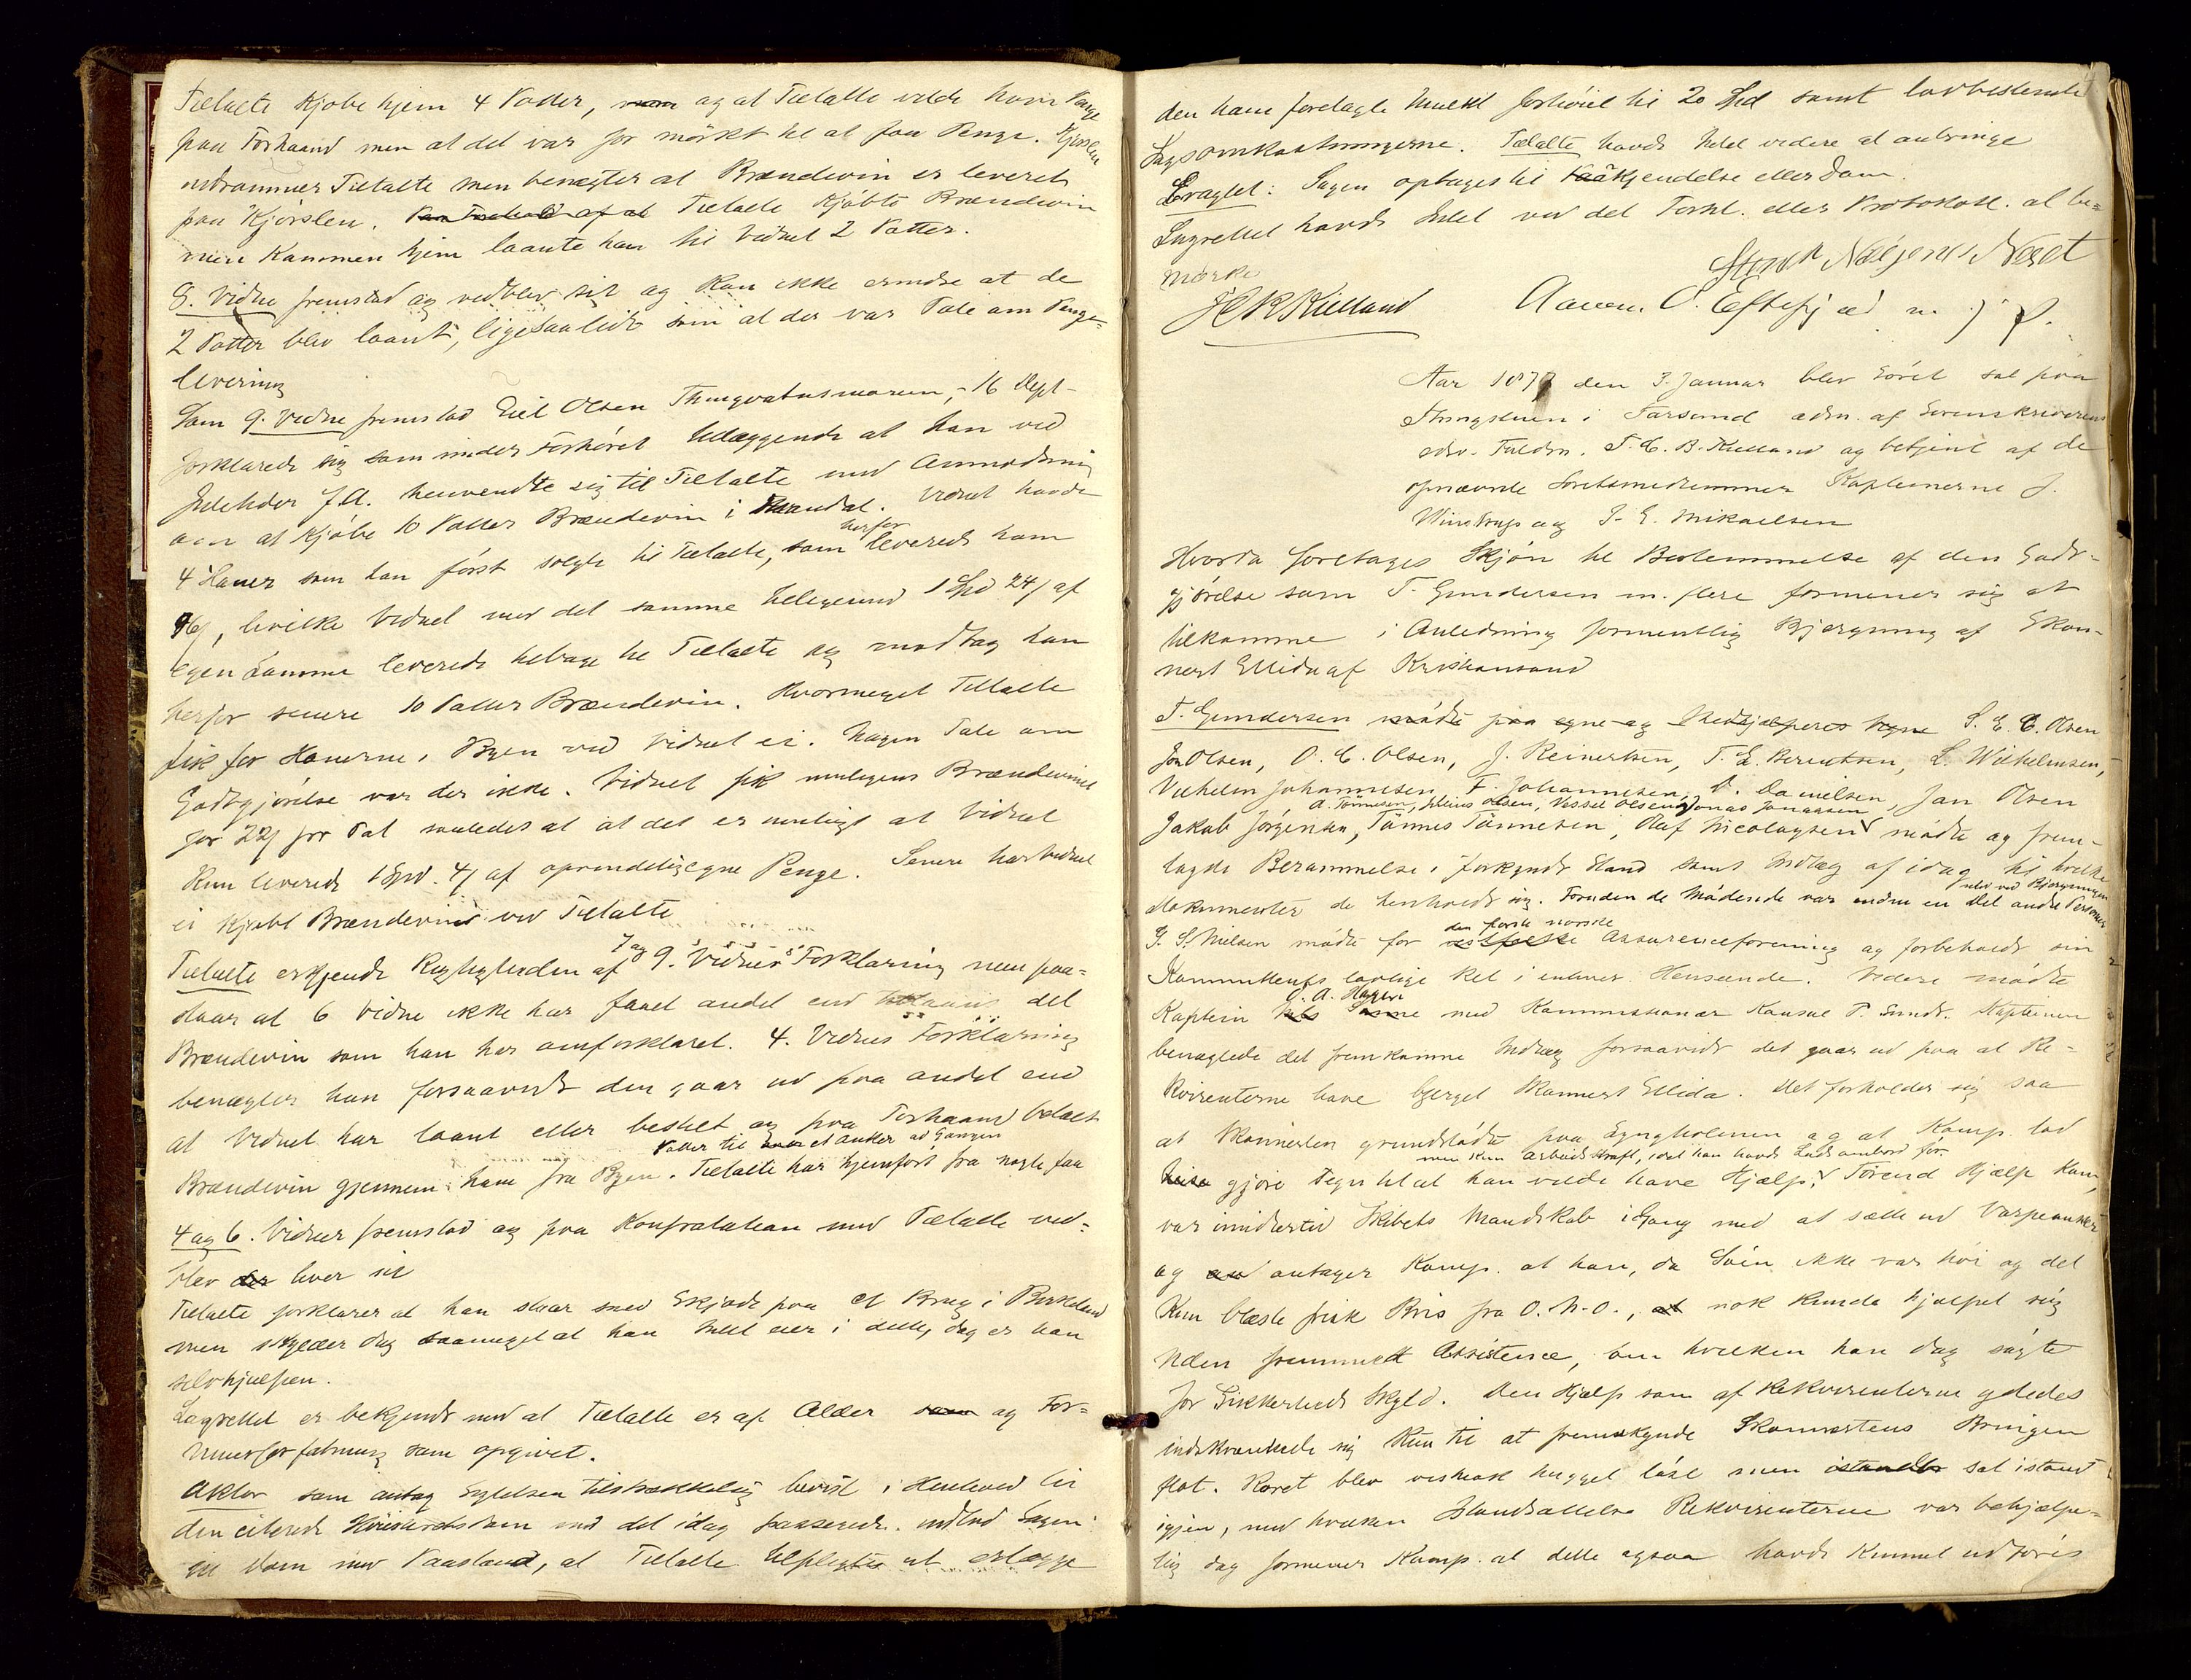 Tiltalte Kjøbe hjem 4 Potter, og at Tiltalte vilde have Penge
paa Forhaand men at det var for mørkt til at faa Penge. Kjørslen
indrømmer Tiltalte men benægter at Brændevin er leveret
paa Kjørslen. Tiltalte Kjøbte Brændevin
men Kommen hjem laante han til Vidnet 2 Potter.
8. Vidne fremstod og vedblev sit og kan ikke erindre at de
2 Potter blev laant, ligesaalidt som at der var Tale om Penge-
levering
Som 9. Vidne fremstod Eiel Olsen
forklarede sig som under Forhøret tillæggende at han ved
Juletider f.A. henvendte sig til Tiltalte med Anmodning
om at Kjøbe 10 Potter Brændevin i Mandal. Vidnet havde
4 Haner som han først solgte til Tiltalte, som herfor leverede ham
, hvilke Vidnet med det samme tilligemed 1 Spd 24 s af
egen Lomme leverede tilbage til Tiltalte og modtog han
herfor senere 10 Potter Brændevin. Hvormeget Tiltalte
fik for Hanerne i Byen ved Vidnet ei. Nogen Tale om
Godtgjørelse var der ikke. Vidnet fik muligens Brændevinet
for 22 s pr Pot saaledes at det er muligt at Vidnet
kun leverede 1 Spd. 4 s af oprindelig egne Penge. Senere har Vidnet
ei Kjøbt Brændevin ved Tiltalte
Tiltalte erkjende Rigtigheden af 7 og 9. Vidners Forklaring men paa-
staar at 6 Vidne ikke har faaet andet end det
Brændevin som han har omforklaret. 4. Vidnes Forklaring
benægter han forsaavidt den gaar ud paa andet end
at Vidnet har laant eller bestilt og paa Forhaand betalt
Brændevin gjennem ham fra Byen. Tiltalte har hjemført fra nogle faa
Potter til et Anker ad Gangen
4 og 6. Vidner fremstod og paa Konfrontation med Tiltalte ved-
blev hver sit
Tiltalte forklarer at han staar med Skjøde paa et Brug i Birkeland
men skylder dog saameget at han Intet eier i dette, dog er han
selvhjulpen.
Lagrettet er bekjendt med at Tiltalte er af Alder og For-
muesforfatning som opgivet.
Aktor som antog Skylden tilstrækkelig bevist i Henhold til
den citerede Høiesteretsdom med det idag passerede indlod Sagen
til Dom med Paastand, at Tiltalte tilpligtes at erlægge
den ham forelagte Mulkt forhøiet til 20 Spd samt lovbestemte
Sagsomkostningerne. Tiltalte havde Intet videre at anbringe
Eragtet: Sagen optages til Kjendelse eller Dom.
Lagrettet havde Intet ved det Forhl. eller Protokoll. at be-
mærke
Næset
JCRKielland Aanen O. Eftestad m. f. P.
Aar 1877 den 3. Januar blev Søret sat paa
Thingstuen i Farsund adm. af Sorenskriverens
edsv. Fuldm. T. C. B. Kielland og betjent af de
opnævnte Søretsmedlemmer Kapteinerne J.
Winstrup og J. E. Mikaelsen
Hvorda foretages Skjøn til Bestemmelse af den Godt-
gjørelse som T. Gundersen m. flere formener sig at
tilkomme i Anledning formentlig Bjergning af Skon-
nert Ellida af Kristiansand
T. Gundersen mødte paa egne og Medhjælperes Vegne S. E. C. Olsen
Jon Olsen, O. C. Olsen, J. Reinertsen, T. E. Berentsen, L. Wilhelmsen,
Vilhelm Johannesen, F. Johannesen, D. Danielsen, Jan Olsen
A. Tønnesen, Julius Olsen, Vessel Olsen, Jonas Jonassen
Jakob Jørgensen, Tønnes Tønnesen, Oluf Nicolaysen mødte og frem-
lagde Berammelse i forkyndt Stand samt Indlæg af idag til hvilke
Dokumenter de henholdt sig. Foruden de Mødende var endnu en Del andre Personer
med ved Bjergningen
J. S. Nielsen mødte for den første norske Assuranceforening og forbeholdt sin
Kommittents lovlige Ret i enhver Henseende. Videre mødte
Kaptein O. A. Hagen med Kommissionær Konsul P. Sundt. Kapteinen
benægtede det fremkomne Indlæg forsaavidt det gaar ud paa at Re-
kvirenterne have bjerget Skonnert Ellida. Det forholder sig saa
at Skonnerten grundstødte paa Lyngholmen og at Komp. lod
gjøre Tegn til at han vilde have Hjælp, Førend Hjælp kom,
men kun Arbeidskraft, idet han havde Lods ombord før
var imidlertid Skibets Mandskab igang med at sætte ud Varpeanker
og antager Komp. at han, da Søen ikke var høi og det
kun blæste frisk Bris fra O. N. O., nok kunde hjulpet sig
uden fremmed Assistence, om hvilken han dog søgte
for Sikkerheds Skyld. Den Hjælp som af Rekvirenterne ydedes
indskrænkede sig kun til at fremskynde Skonnertens Bringen
flot. Roret blev vistnok hugget løst men sat istand
igjen, med hvilken Istandsættelse Rekvirenterne var behjælpe-
lig dog formener Komp. at dette ogsaa havde kunnet udføres